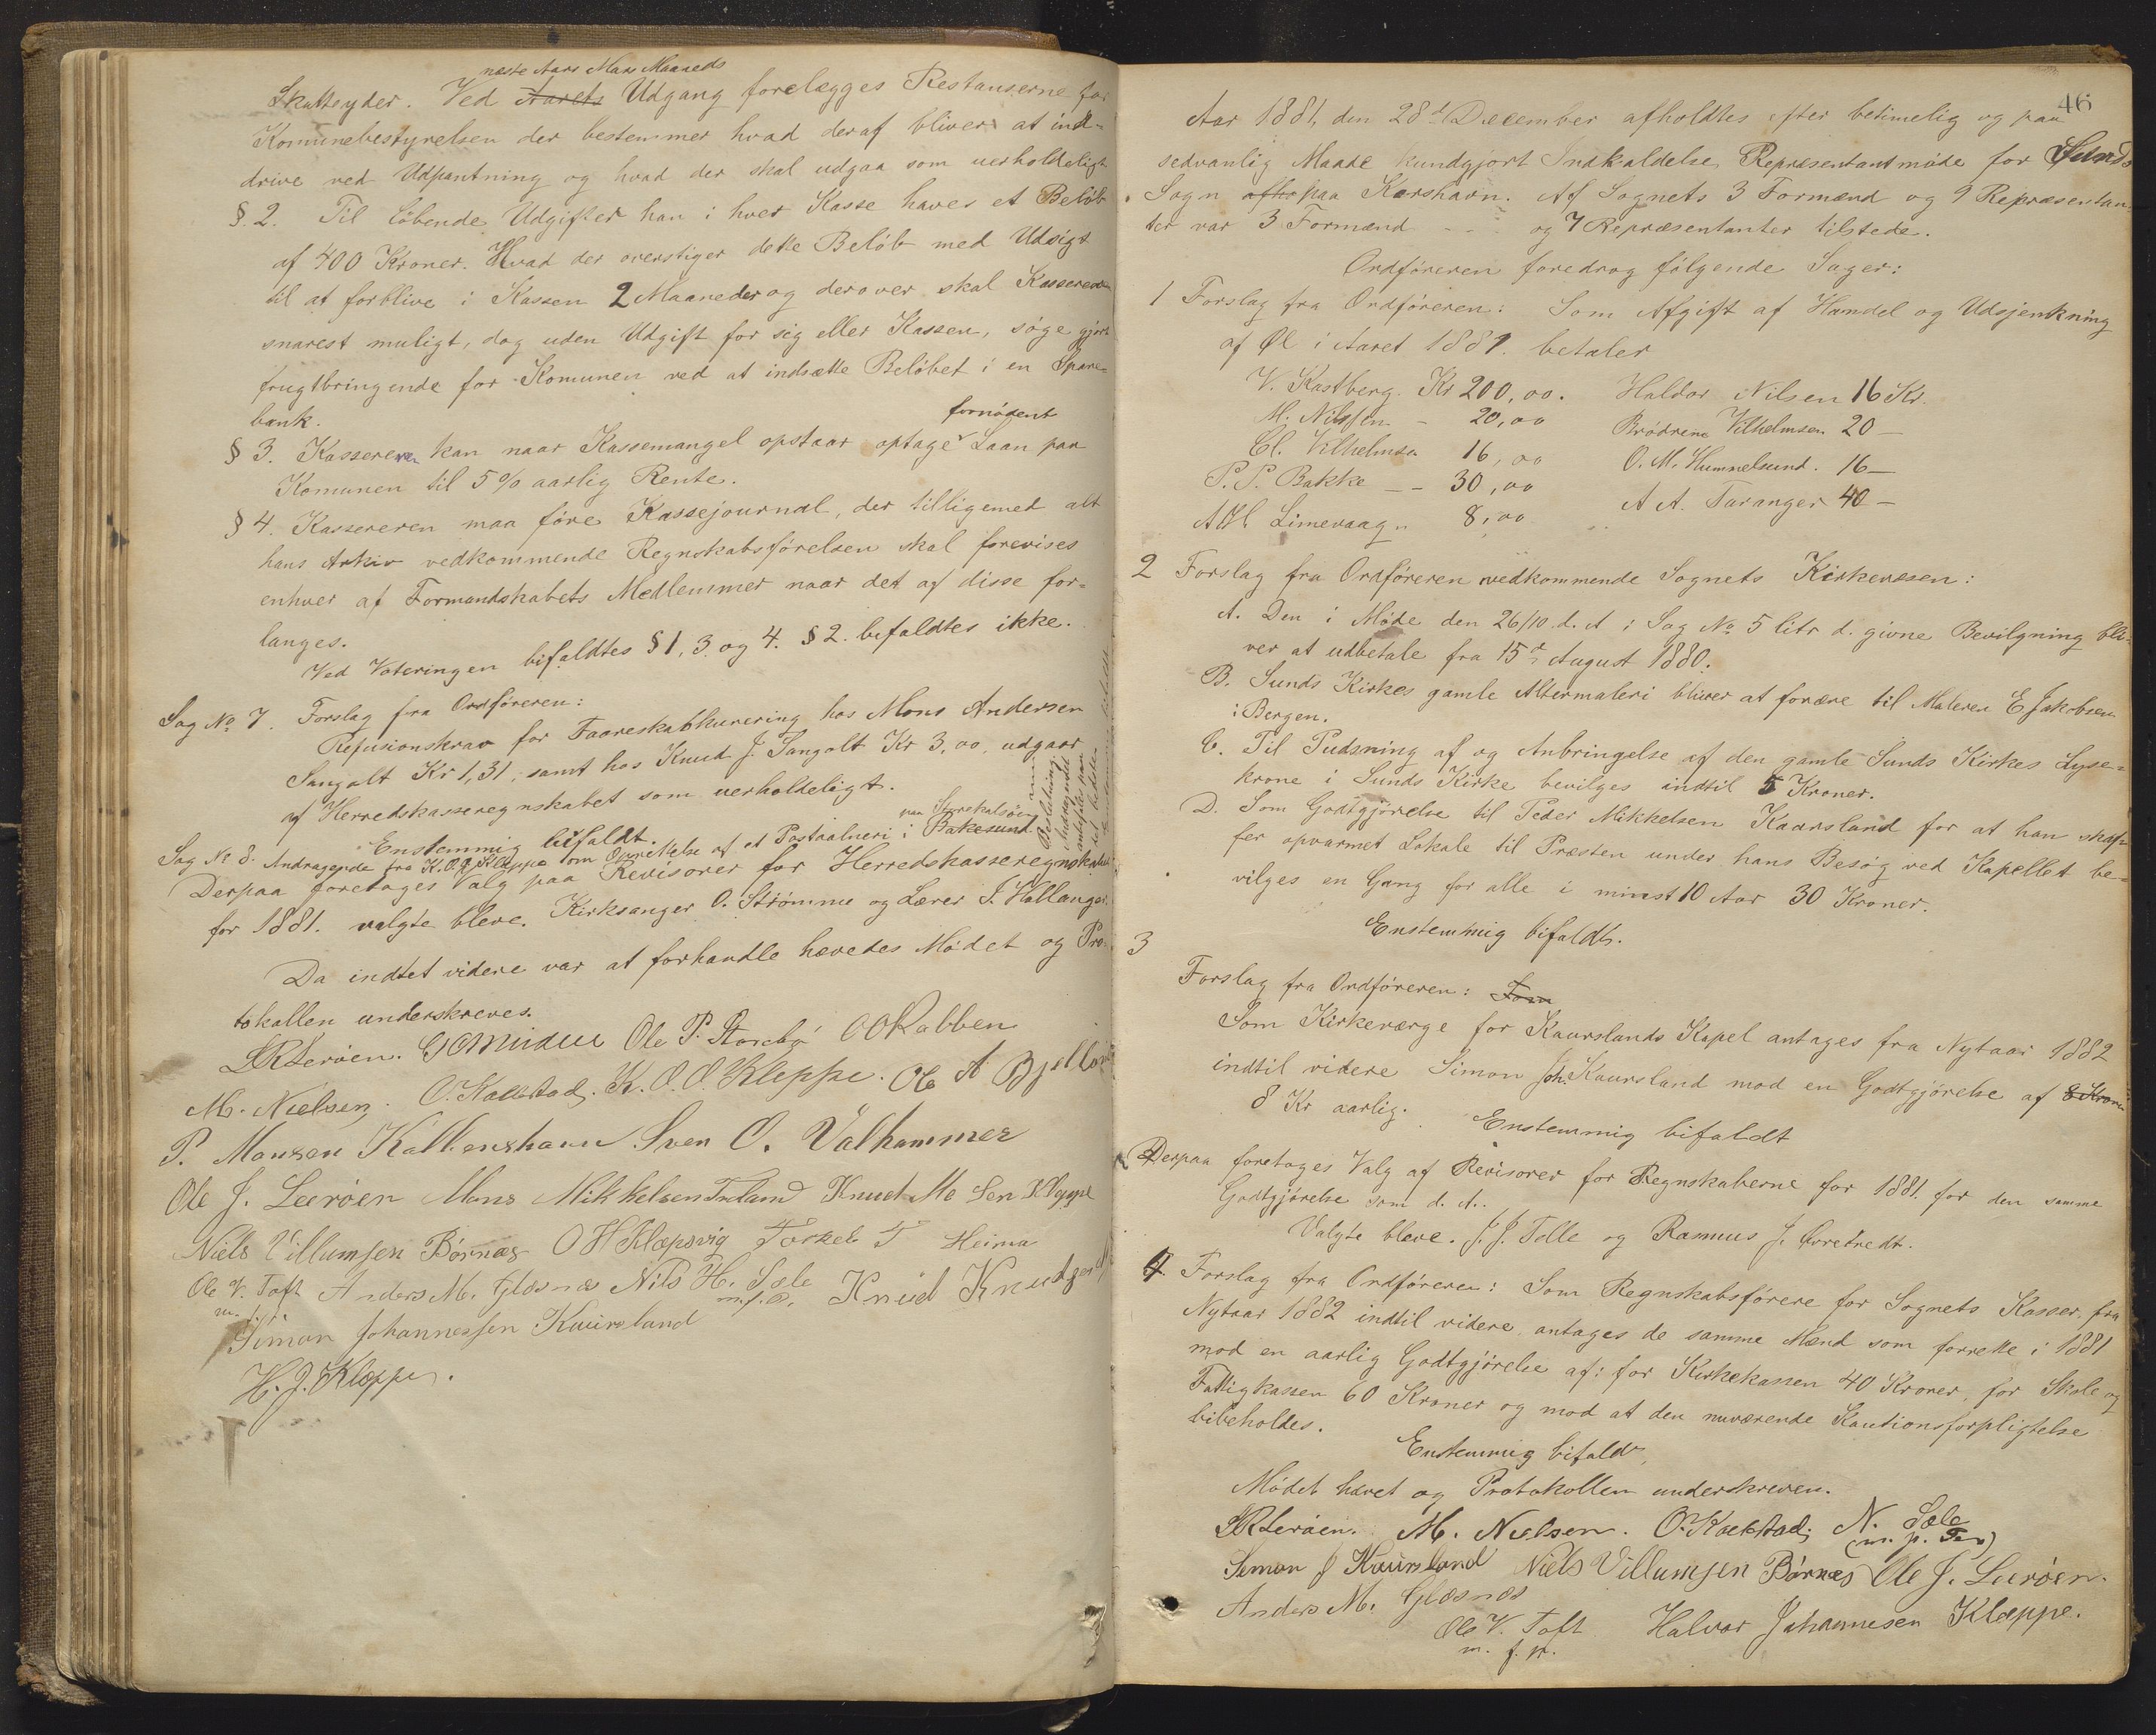 næste Aars Mars Maaneds
Skatteyder. Ved Aarets Udgang forelægges Restanserne for
Komunebestyrelsen der bestemmer hvad deraf bliver at ind-
drive ved Udpantning og hvad der skal udgaa som uerholdeligt
§ 2. Til løbende Udgifter kan i hver Kasse haves et Beløb
af 400 Kroner. Hvad der overstiger dette Beløb med Udsigt
til at forblive i Kassen 2 Maaneder og derover skal Kassereren
snarest muligt, dog uden Udgift for sig eller Kassen, søge gjort
frugtbringende for Komunen ved at indsætte Beløbet i en Spare-
bank.
fornødent
§ 3. Kassereren kan naar Kassemangel opstaar optage Laan paa
Komunen til 5 % aarlig Rente.
§ 4. Kassereren maa føre Kassejournal, der tilligemed alt
hans Arkiv vedkommende Regnskabsførelsen skal forevises
enhver af Formandskabets Medlemmer naar det af disse for-
langes.
Ved Voteringen bifaldtes § 1, 3 og 4. § 2. bifaldtes ikke.
Sag No 7. Forslag fra Ordføreren:
Refusionskrav for Faareskabkurering hos Mons Andersen
Sangolt Kr 1,31, samt hos Knud J. Sangolt Kr 3,00, udgaar
af Herredskasseregnskabet som uerholdeligt.
Enstemmig bifaldt.
Sag No 8. Andragende fra K. O. O. Kleppe om Oprettelse af et Postaabneri i Bakkesund
Derpaa foretages Valg paa Revisorer for Herredskasseregnskabet
for 1881. valgte bleve. Kirksanger O. Strømme og Lærer J. Hallanger.
Da indtet videre var at forhandle hævedes Mødet og Pro-
tokollen underskreves.
LRLerøen. Ole P. Storebø OORabben
M. Nielsen. O. Kallestad. K. O. O. Kleppe. Ole A Bjelland
P. Monsen Kalkenshavn Sven O. Valhammer
Ole J. Leerøen Mons Mikkelsen Toland Knud Mo Sen Kleppe
Niels Villumsen Børnæs O H Klepsvig Torkel T Heima
Ole V. Toft Anders M. Glæsnæs Nils H. Sæle Knud Knudsen
m. f. P. m. f. P.
Simon Johannessen Kaursland
H. J. Kleppe.
46
Aar 1881, den 28d December afholdtes efter betimelig og paa
sedvanlig Maade kundgjort Indkaldelse Repræsentantmøde for Sunds
Sogn afho paa Korshavn. Af Sognets 3 Formænd og 9 Repræsentan-
ter var 3 Formænd og 7 Repræsentanter tilstede.
Ordføreren foredrog følgende Sager:
1 Forslag fra Ordføreren: Som Afgift af Handel og Udsjenkning
af Øl i Aaret 1881. betaler
V. Kastberg. Kr 200,00. Haldor Nilsen 16 Kr.
M. Nilssen - 20,00 Brødrene Vilhelmsen 20 -
Cl. Vilhelmsen 16,00 O. M. Hummelsund. 16 -
P. P. Bakke - - 30,00 A A. Taranger 40 -
Limevaag " 8,00
2 Forslag fra Ordføreren vedkommende Sognets Kirkevæsen:
A. Den i Møde den 26/10 d. A i Sag No 5 litr d. givne Bevilgning bli-
ver at udbetale fra 15de August 1880.
B. Sunds Kirkes gamle Altermaleri bliver at forære til Maleren E Jakobsen
i Bergen.
C. Til Pudsning af og Anbringelse af den gamle Sunds Kirkes Lyse-
krone i Sunds Kirke bevilges indtil 5 Kroner.
D. Som Godtgjørelse til Peder Mikkelsen Kaursland for at han skaf-
fer opvarmet Lokale til Præsten under hans Besøg ved Kapellet be-
vilges en Gang for alle i minst 10 Aar 30 Kroner.
Enstemmig bifaldt.
3
Forslag fra Ordføreren: Som
Som Kirkeværge for Kaurslands Kapel antages fra Nytaar 1882
indtil videre Simon Joh. Kaursland mod en Godtgjørelse af 8 Kroner
8 Kr aarlig. Enstemmig bifaldt
Derpaa foretages Valg af Revisorer for Regnskaberne for 1881. for den samme
Godtgjørelse som d. A.
Valgte bleve. J. J. Telle og Rasmus J.
4. Forslag fra Ordføreren: Som Regnskabsførere for Sognets Kasser, fra
Nytaar 1882 indtil videre antages de samme Mænd som forrette i 1881
mod en aarlig Godtgjørelse af: for Kirkekassen 40 Kroner, for Skole og
Fattigkassen 60 Kroner og mod at den nuværende Kautionsforpligtelse
bibeholdes.
Enstemmig bifaldt.
Mødet hævet og Protokollen underskreven.
LRLerøen. M. Nielsen. O. Kallestad. N. Sæle
(m. p. Pen)
Simon J Kaursland Niels Villumsen Børnæs Ole J. Leerøen.
Anders M. Glæsnæs
Ole V. Toft Halvor Johannesen Kleppe.
m. f. P.